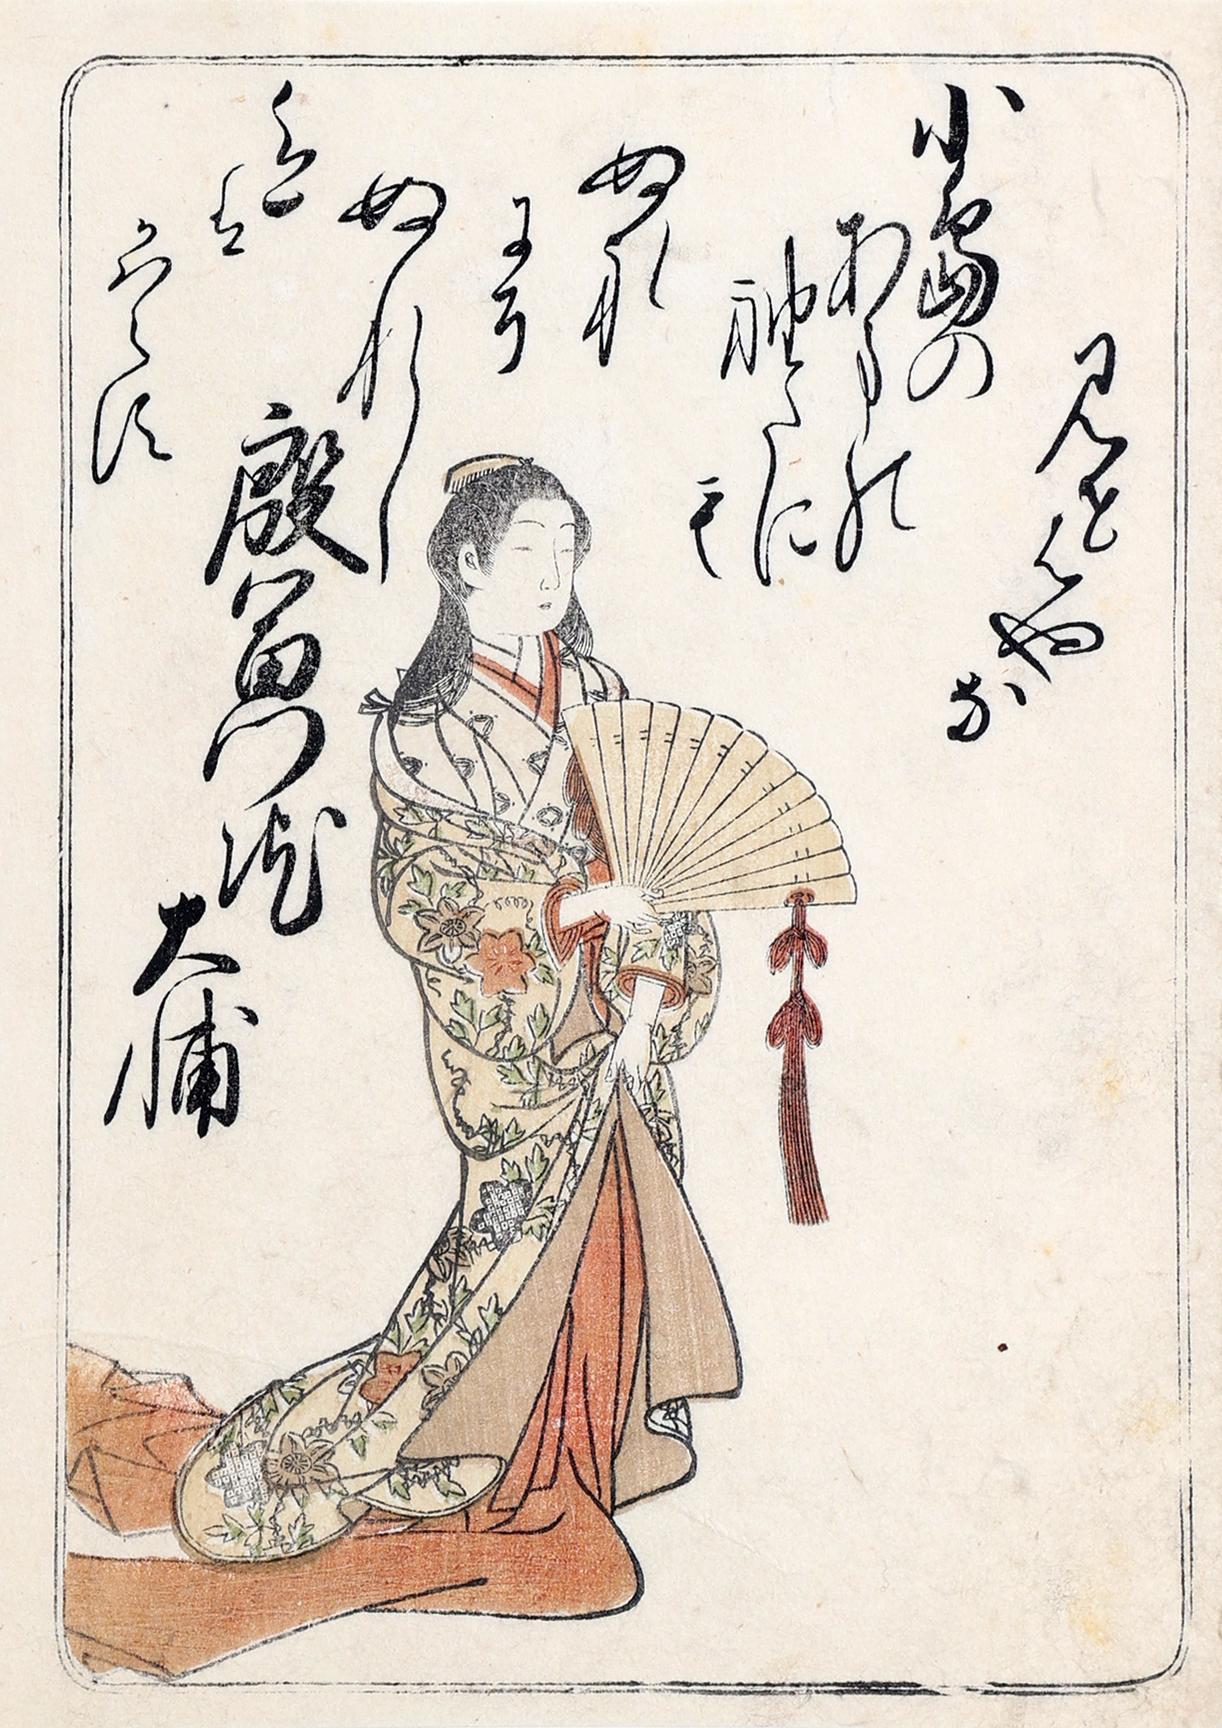 見せはや
な
小嶋の
あまの
袖たに
も
ぬれ
にそ
ぬれし
色
は
かはらす
殷冨門院
大輔